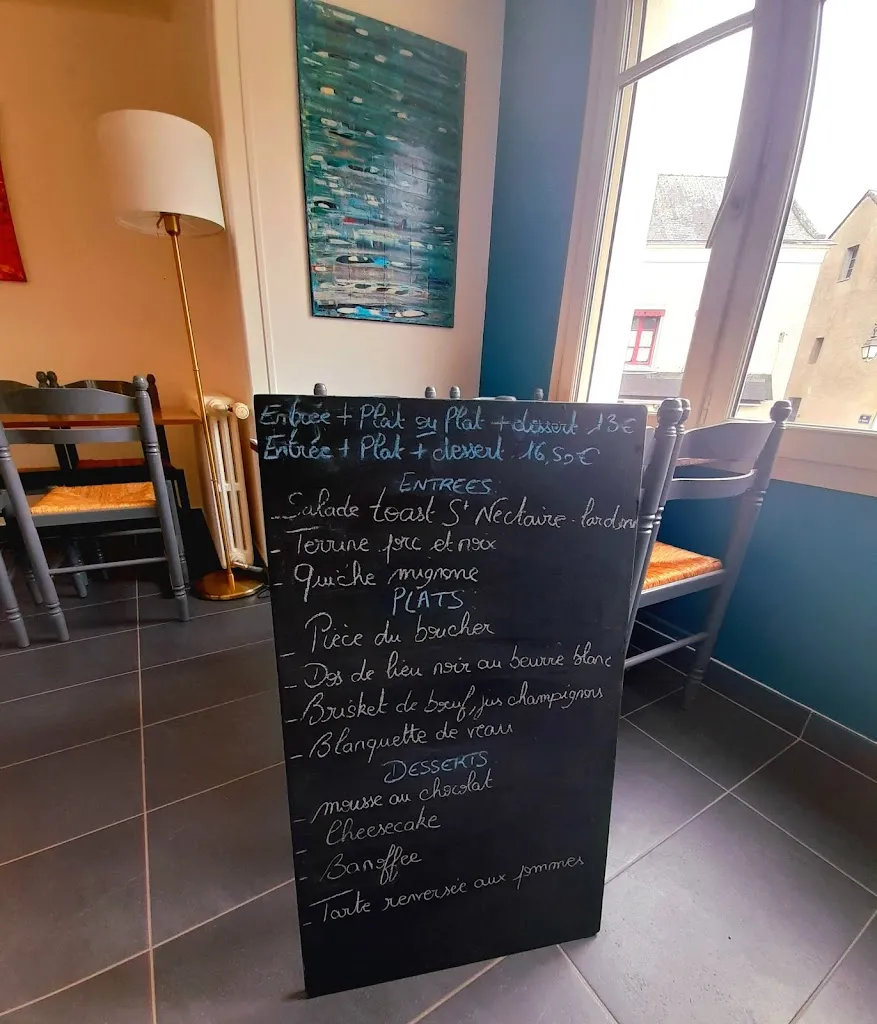 Entrée + Plat ou Plat + dessert 13€
Entrée + Plat + dessert 16,50€
ENTREES
- Salade toast St Nectaire. lardons
- Terrine porc et noix
- Quiche mignone
PLATS
- Pièce du boucher
- Dos de lieu noir au beurre blanc
- Brisket de bœuf, jus champignons
- Blanquette de veau
DESSERTS
- mousse au chocolat
- Cheesecake
- Banoffee
- Tarte renversée aux pommes